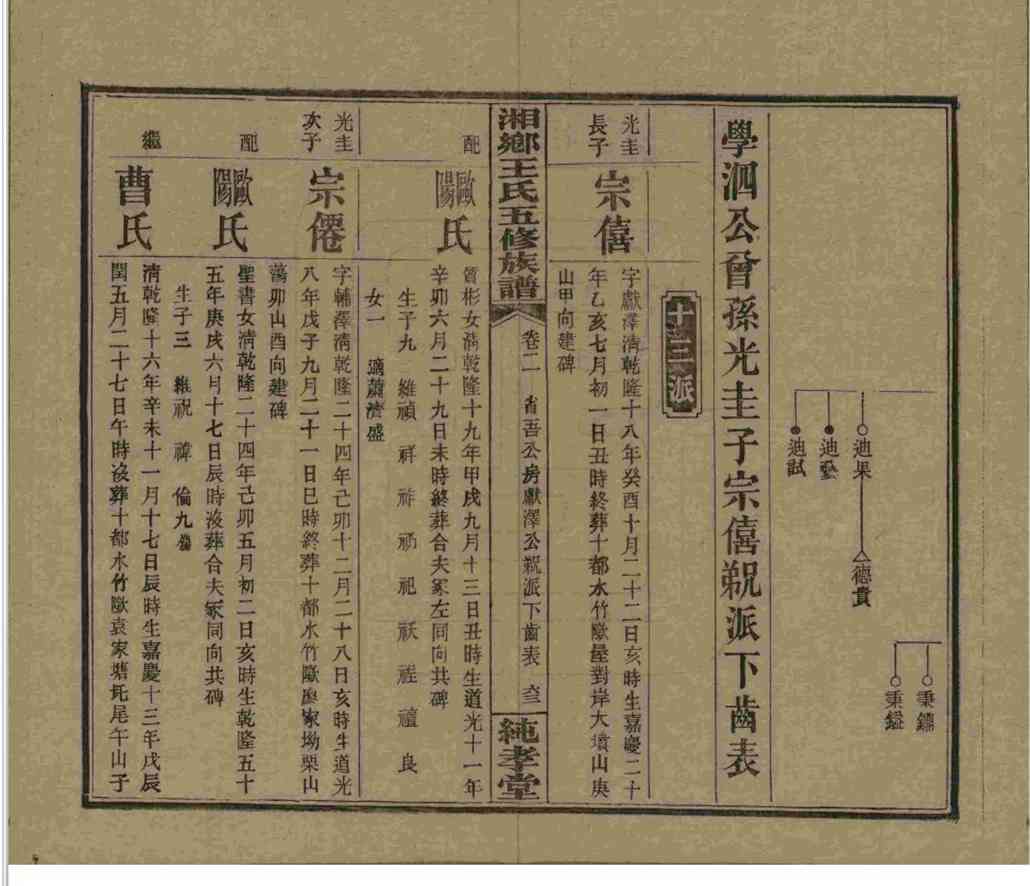 秉鑣
秉鎰
迪果
德貴
迪藝
迪試
學泗公曾孫光圭子宗僖覡派下齒表
十三派
光圭
長子
宗僖
字獻澤清乾隆十八年癸酉十月二十二日亥時生嘉慶二十
年乙亥七月初一日丑時終葬十都水竹歐屋對岸大墳山庚
山甲向建碑
湘鄉王氏五修族譜
卷二
省吾公房獻澤公覡派下齒表
純孝堂
配
歐陽氏
質彬女清乾隆十九年甲戌九月十三日丑時生道光十一年
辛卯六月二十九日未時終葬合夫冢左同向共碑
生子九 維禎 祥 祚 礽 祀 祆 禮 良
女一 適蕭濟盛
光圭
次子
宗僊
字輔澤清乾隆二十四年己卯十二月二十八日亥時生道光
八年戊子九月二十一日巳時終葬十都水竹歐廖家坳栗山
蕩卯山酉向建碑
配
歐陽氏
聖書女清乾隆二十四年己卯五月初二日亥時生乾隆五十
五年庚戌六月十七日辰時歿葬合夫冢同向共碑
生子三 維祝 禕 倫九殤
繼
曹氏
清乾隆十六年辛未十一月十七日辰時生嘉慶十三年戊辰
閏五月二十七日午時歿葬十都水竹歐袁家塘坨尾午山子